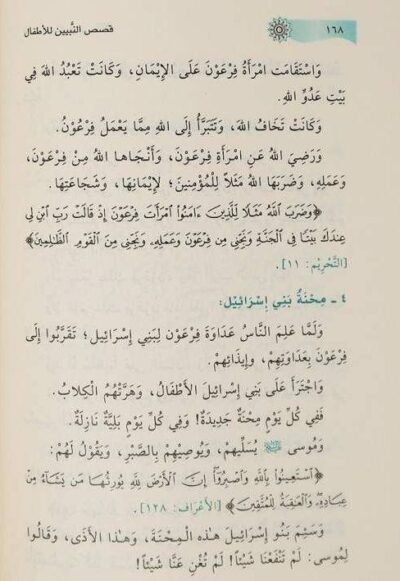 ١٦٨
قصص النَّبيين للأطفال
وَاسْتَقَامَت امْرَأَةُ فِرْعَوْنَ عَلَى الإِيْمَانِ، وَكَانَتْ تَعْبُدُ اللهَ فِي
بَيْتِ عَدُوِّ اللهِ.
وَكَانَتْ تَخَافُ اللهَ، وَتَتَبَرَّأُ إِلَى اللهِ مِمَّا يَعْمَلُ فِرْعَوْنُ.
وَرَضِيَ اللهُ عَنِ امْرَأَةِ فِرْعَوْنَ، وَأَنْجَاهَا اللهُ مِنْ فِرْعَوْنَ،
وَعَمَلِهِ، وَضَرَبَهَا اللهُ مَثَلاً لِلْمُؤْمِنِينَ؛ لإِيْمَانِهَا، وَشَجَاعَتِهَا.
﴿وَضَرَبَ ٱللَّهُ مَثَلًا لِّلَّذِينَ ءَامَنُوا۟ ٱمْرَأَتَ فِرْعَوْنَ إِذْ قَالَتْ رَبِّ ٱبْنِ لِى
عِندَكَ بَيْتًا فِى ٱلْجَنَّةِ وَنَجِّنِى مِن فِرْعَوْنَ وَعَمَلِهِۦ وَنَجِّنِى مِنَ ٱلْقَوْمِ ٱلظَّـٰلِمِينَ﴾
[التَّحْرِيْم: ١١].
٤ - مِحْنَةُ بَنِي إِسْرَائِيْلَ:
وَلَمَّا عَلِمَ النَّاسُ عَدَاوَةَ فِرْعَوْنَ لِبَنِي إِسْرَائِيْلَ؛ تَقَرَّبُوا إِلَى
فِرْعَوْنَ بِعَدَاوَتِهِمْ، وَإِيذَائِهِمْ.
وَاجْتَرَأَ عَلَى بَنِي إِسْرَائِيْلَ الأَطْفَالُ، وَهَرَّتْهُمُ الْكِلَابُ.
فَفِي كُلِّ يَوْمٍ مِحْنَةٌ جَدِيدَةٌ! وَفِي كُلِّ يَوْمٍ بَلِيَّةٌ نَازِلَةٌ.
وَمُوسَى ﷺ يُسَلِّيهِمْ، وَيُوصِيْهِمْ بِالصَّبْرِ، وَيَقُولُ لَهُمْ:
﴿ٱسْتَعِينُوا۟ بِٱللَّهِ وَٱصْبِرُوٓا۟ إِنَّ ٱلْأَرْضَ لِلَّهِ يُورِثُهَا مَن يَشَآءُ مِنْ
عِبَادِهِۦ وَٱلْعَـٰقِبَةُ لِلْمُتَّقِينَ﴾ [الأَعْرَاف: ١٢٨].
وَسَئِمَ بَنُو إِسْرَائِيْلَ هـٰذِهِ الْمِحْنَةَ، وَهـٰذَا الأَذَى، وَقَالُوا
لِمُوسَى: لَمْ تَنْفَعْنَا شَيْئاً! لَمْ تُغْنِ عَنَّا شَيْئاً!